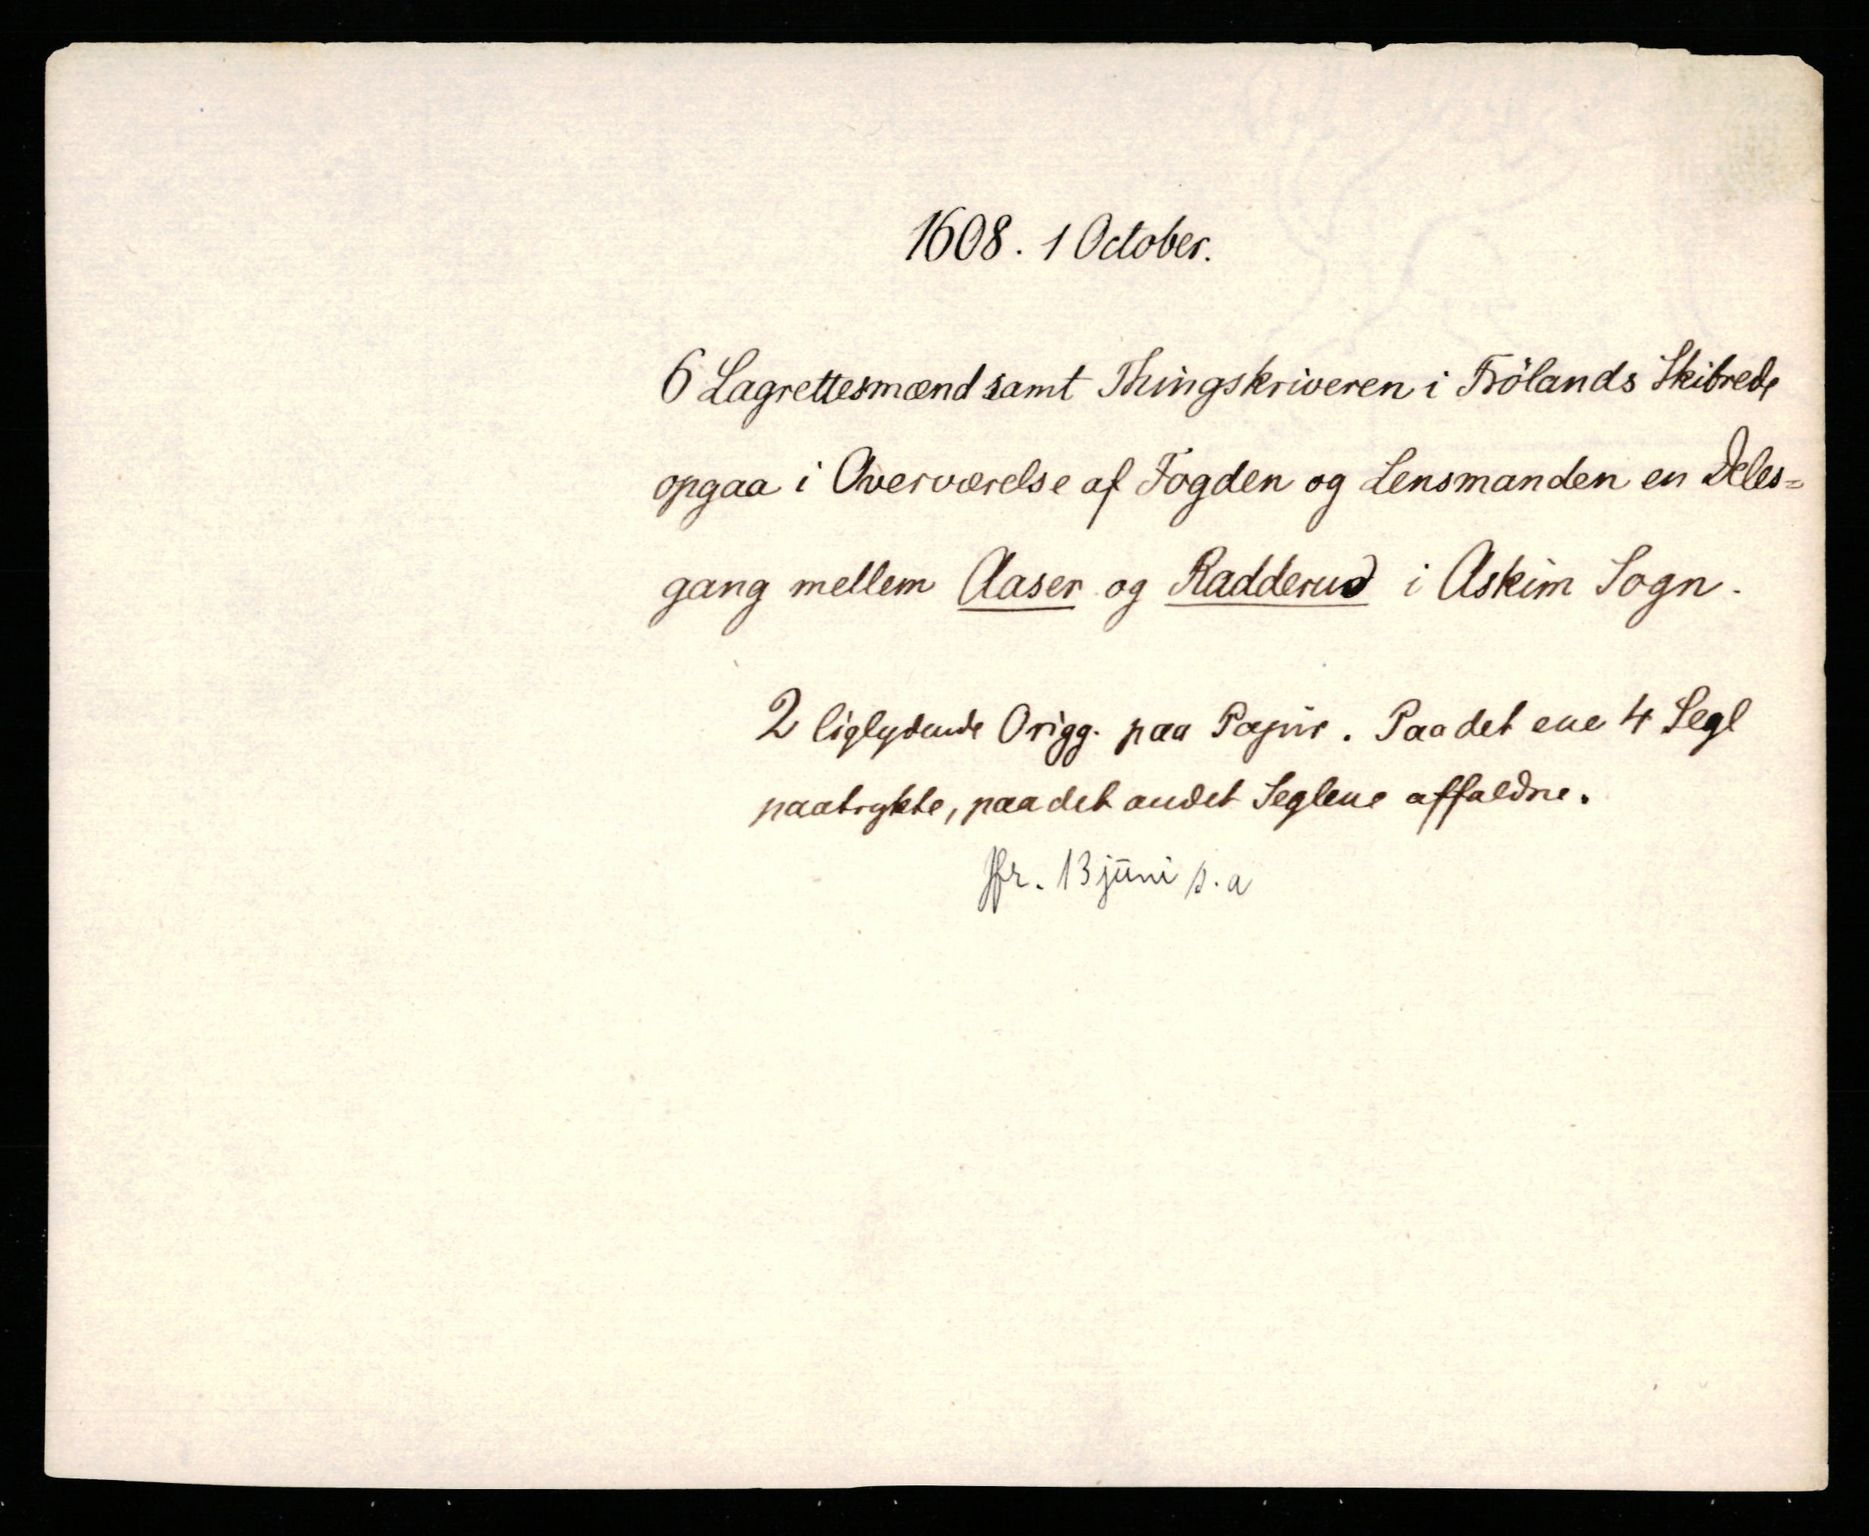 1608. 1 October.
6 Lagrettesmænd samt Thingskriveren i Frölands Skibrede
opgaa i Overværelse af Fogden og Lensmanden en Deles=
gang mellem Aaser og Radderud i Askim Sogn.
2 liglydende Origg. paa Papir. Paa det ene 4 Segl
paatrykte, paa det andet Seglene affaldne.
Jfr. 13 juni s. a